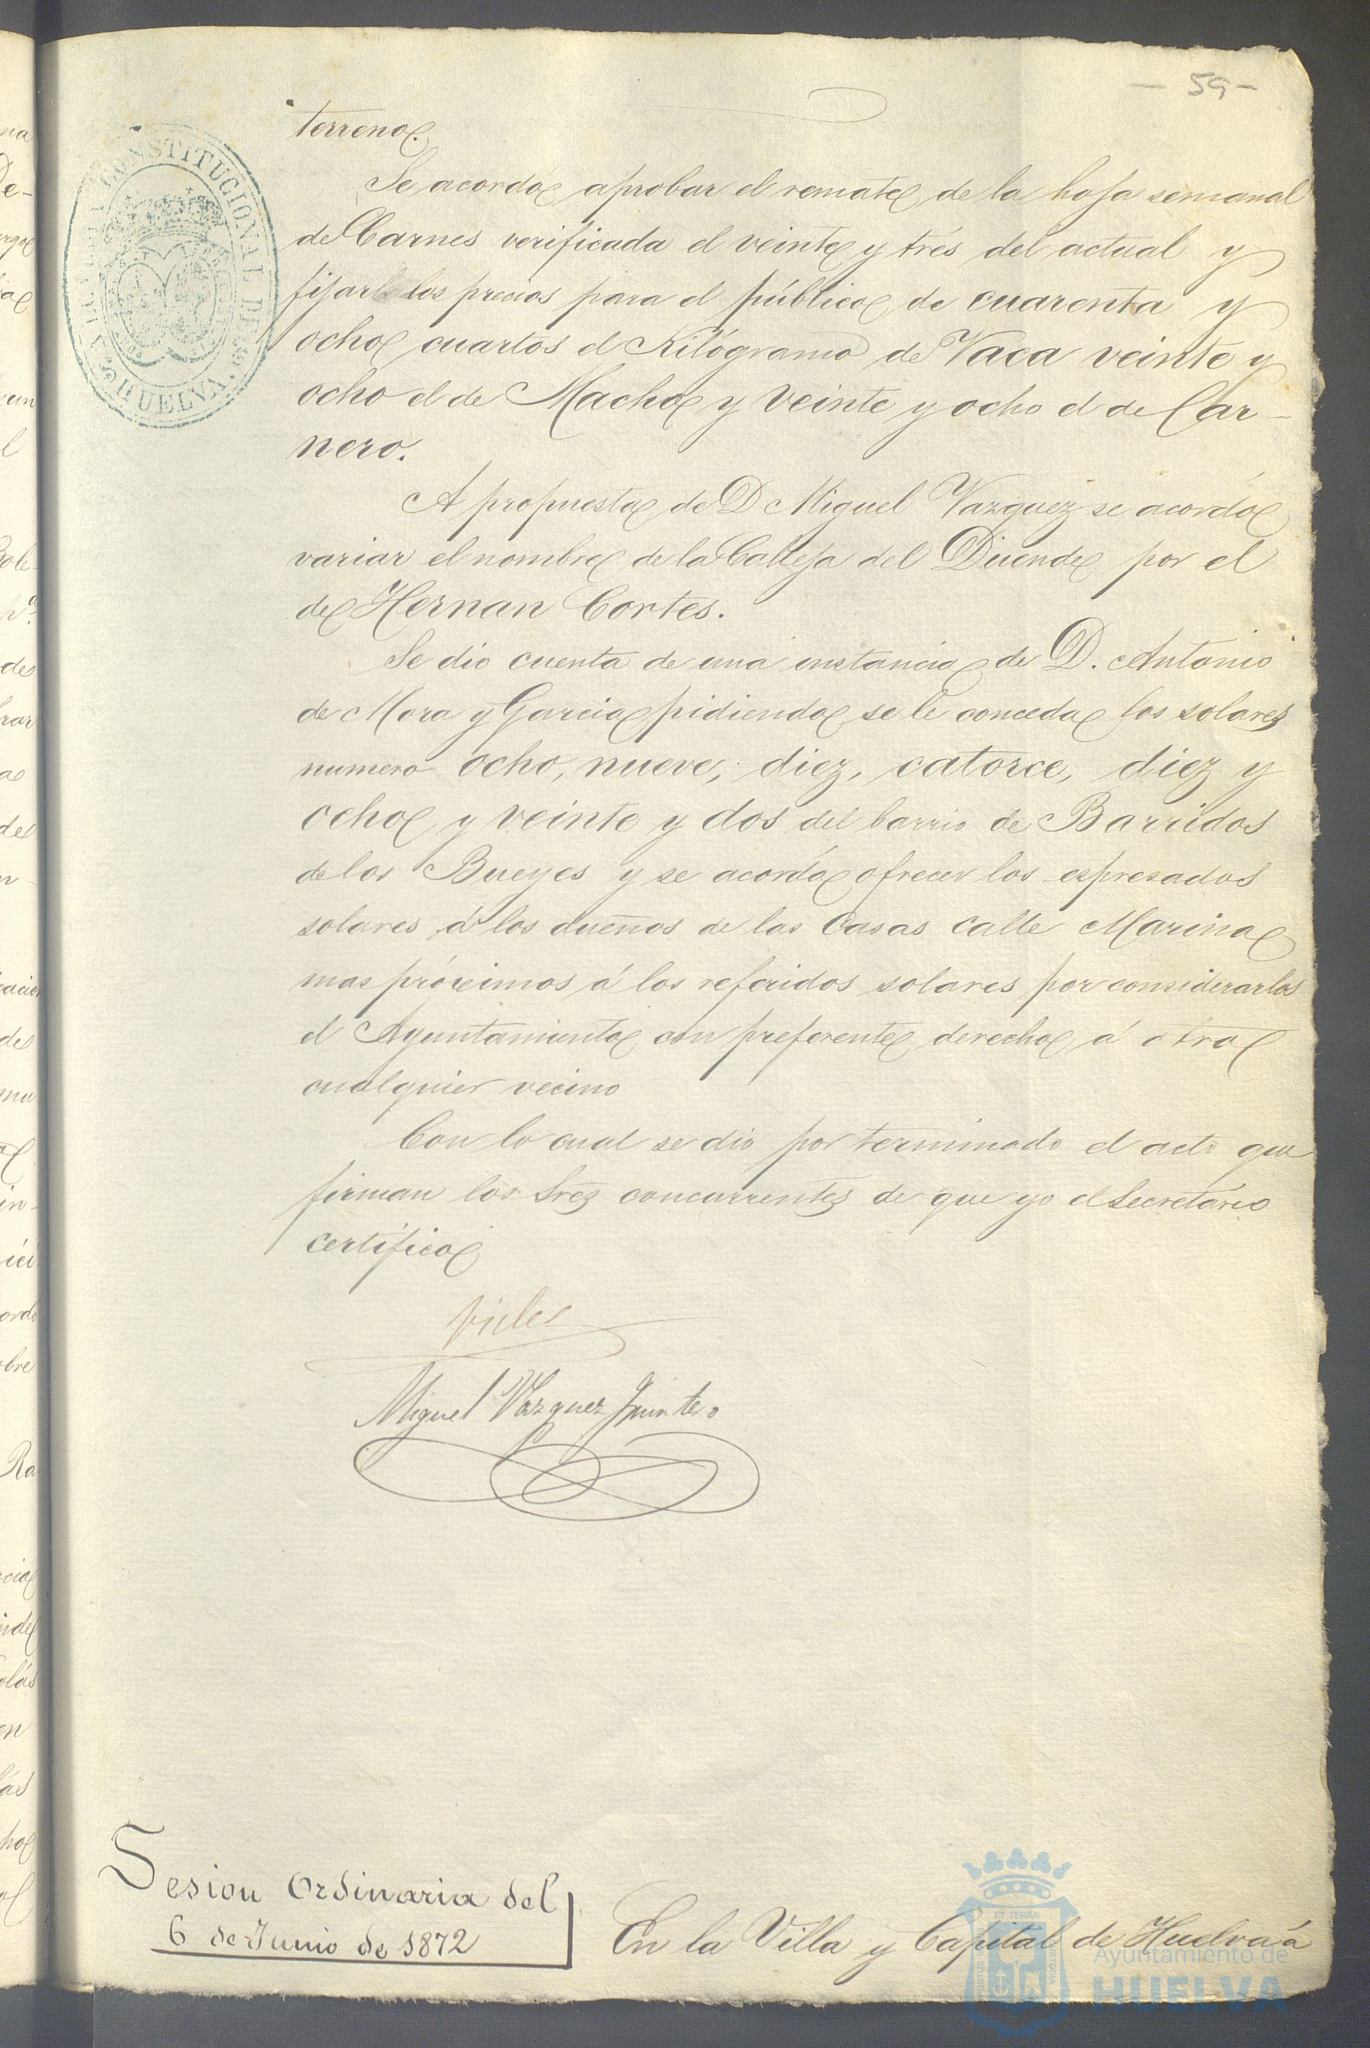 - 59 -
terreno.
Se acordó aprobar el remate de la hoja semanal
de Carnes verificada el veinte y tres del actual y
fijar los precios para el público de cuarenta y
ocho cuartos el Kilógramo de Vaca veinte y
ocho el de Macho y veinte y ocho el de Car-
nero.
A propuesta de D Miguel Vazquez se acordó
variar el nombre de la Calleja del Duende por el
de Hernan Cortes.
Se dio cuenta de una instancia de D. Antonio
de Mora y Garcia pidiendo se le conceda los solares
numero ocho, nueve, diez, catorce, diez y
ocho y veinte y dos del barrio de Barridos
de los Bueyes y se acordó ofrecer los espresados
solares á los dueños de las Casas calle Marina
mas próximos á los referidos solares por considerarlos
el Ayuntamiento con preferente derecho á otro
cualquier vecino
Con lo cual se dio por terminado el acto que
firman los Sres concurrentes de que yo el Secretario
certifico
Miguel Vazquez Quintero
Sesion Ordinaria del
6 de Junio de 1872
En la Villa y Capital de Huelva á
CONSTITUCIONAL DE
HUELVA.
Ayuntamiento de
HUELVA